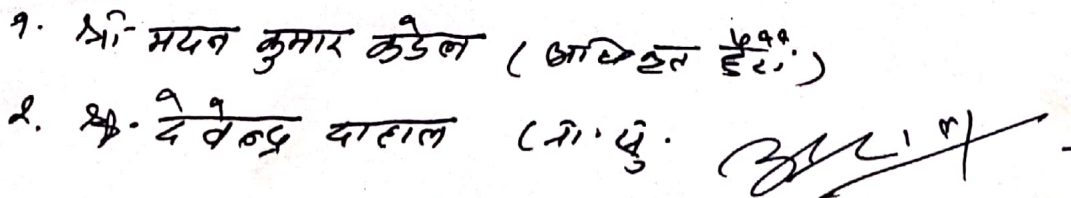 १. श्री मदन कुमार कडेल (अधिकृत
२. श्री. देवेन्द्र दाहाल (